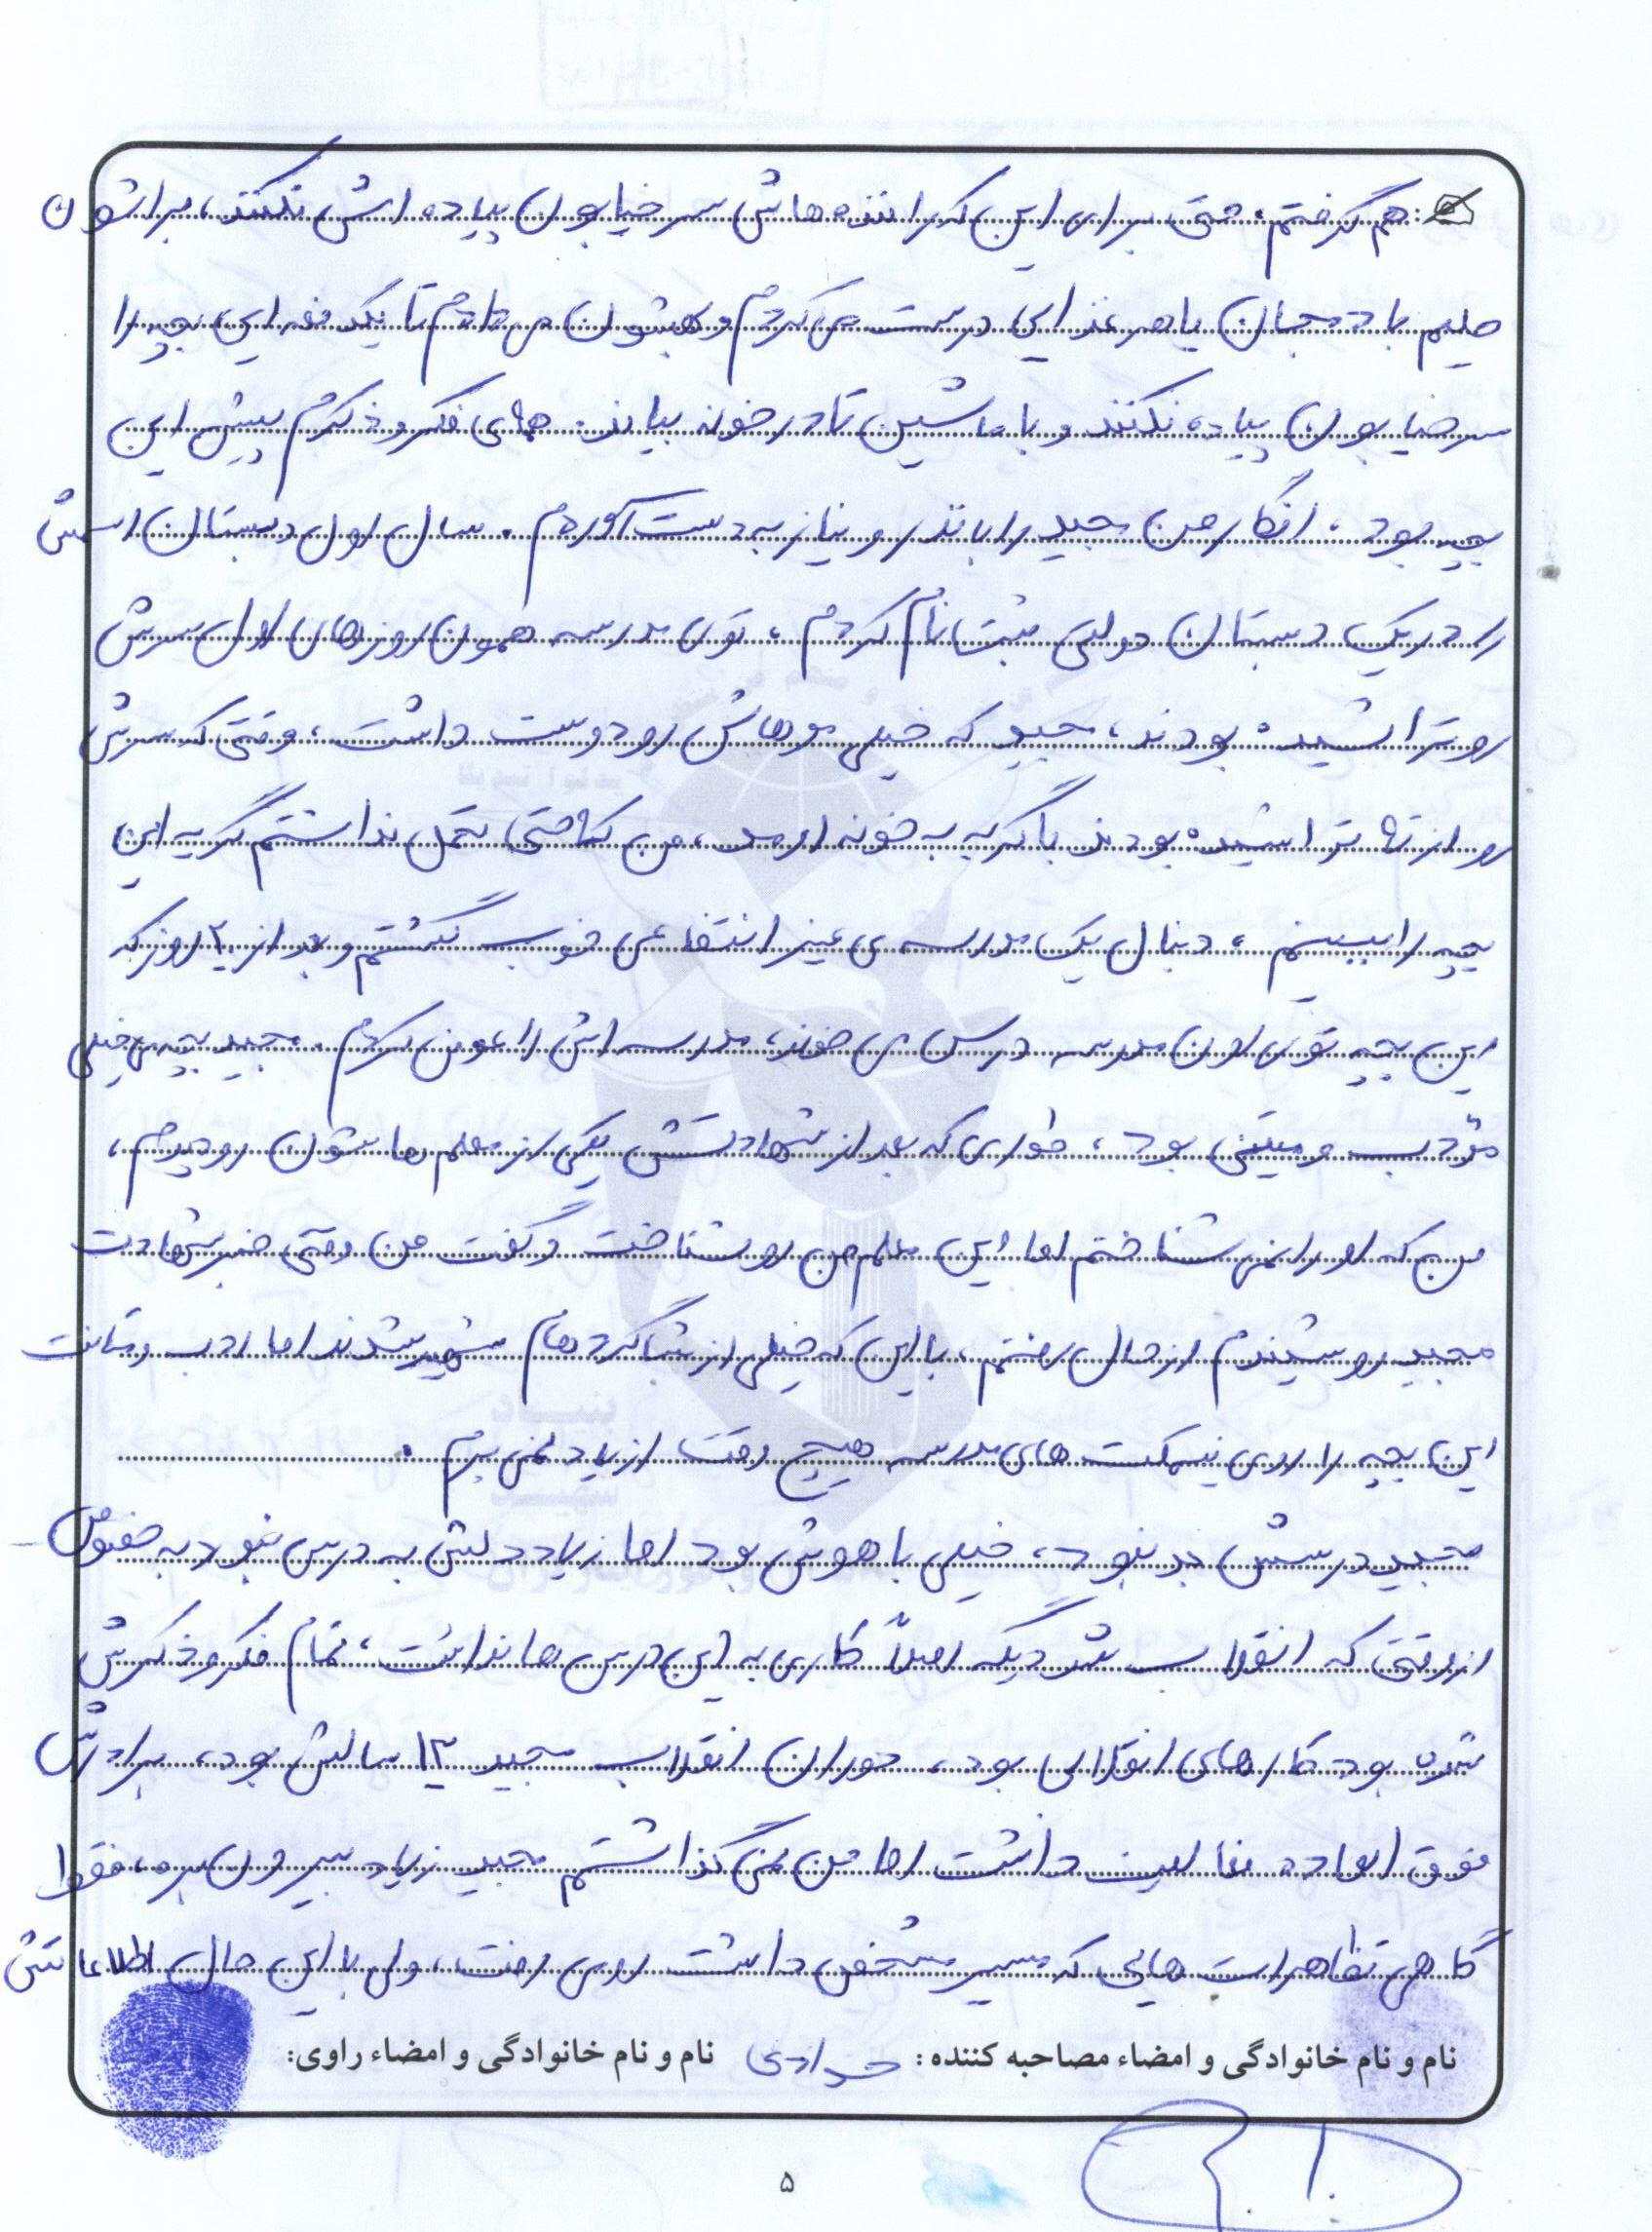 هم گرفتم، حتی برای این که راننده هاش سر خیابون پیاده اش نکنند، براشون
حلیم بادمجان یا هر غذایی درست می کردم و بهشون می دادم تا یک دفعه این بچه را
سر خیابون پیاده نکنند و با ماشین تا در خونه بیاند. همه ی فکر و ذکرم پیش این
بچه بود، انگار من مجید را با نذر و نیاز به دست آوردم. سال اول دبستان اسمش
را در یک دبستان دولتی ثبت نام کردم، توی مدرسه همون روزهای اول سرش
رو تراشیده بودند، مجید که خیلی موهاش رو دوست داشت، وقتی که سرش
رو از ته تراشیده بودند با گریه به خونه اومد، من که حتی تحمل نداشتم گریه این
بچه را ببینم، دنبال یک مدرسه ی غیر انتفاعی خوب گشتم و بعد از ۲۰ روز که
این بچه توی اون مدرسه درس می خوند، مدرسه اش را عوض کردم. مجید بچه ی خیلی
مؤدب و متینی بود، طوری که بعد از شهادتش یکی از معلم هاشون رو دیدم،
من که او را نمی شناختم اما این معلم من رو شناخت و گفت من وقتی خبر شهادت
مجید رو شنیدم از حال رفتم، با این که خیلی از شاگردهام شهید شدند اما ادب و متانت
این بچه را روی نیمکت های مدرسه هیچ وقت از یاد نمی برم.
مجید درسش بد نبود، خیلی با هوش بود اما زیاد دلش به درس نبود به خصوص
از وقتی که انقلاب شد دیگه اصلاً کاری به این درس ها نداشت، تمام فکر و ذکرش
شده بود کارهای انقلابی بود، دوران انقلاب مجید ۱۳ سالش بود، برادرش
فوق العاده فعالیت داشت اما من نمی گذاشتم مجید زیاد بیرون بره، فقط
گاهی تظاهرات هایی که مسیر مشخصی داشت روی رفت، ولی با این حال اطلاعاتش
نام و نام خانوادگی و امضاء مصاحبه کننده: نام و نام خانوادگی و امضاء راوی:
۵